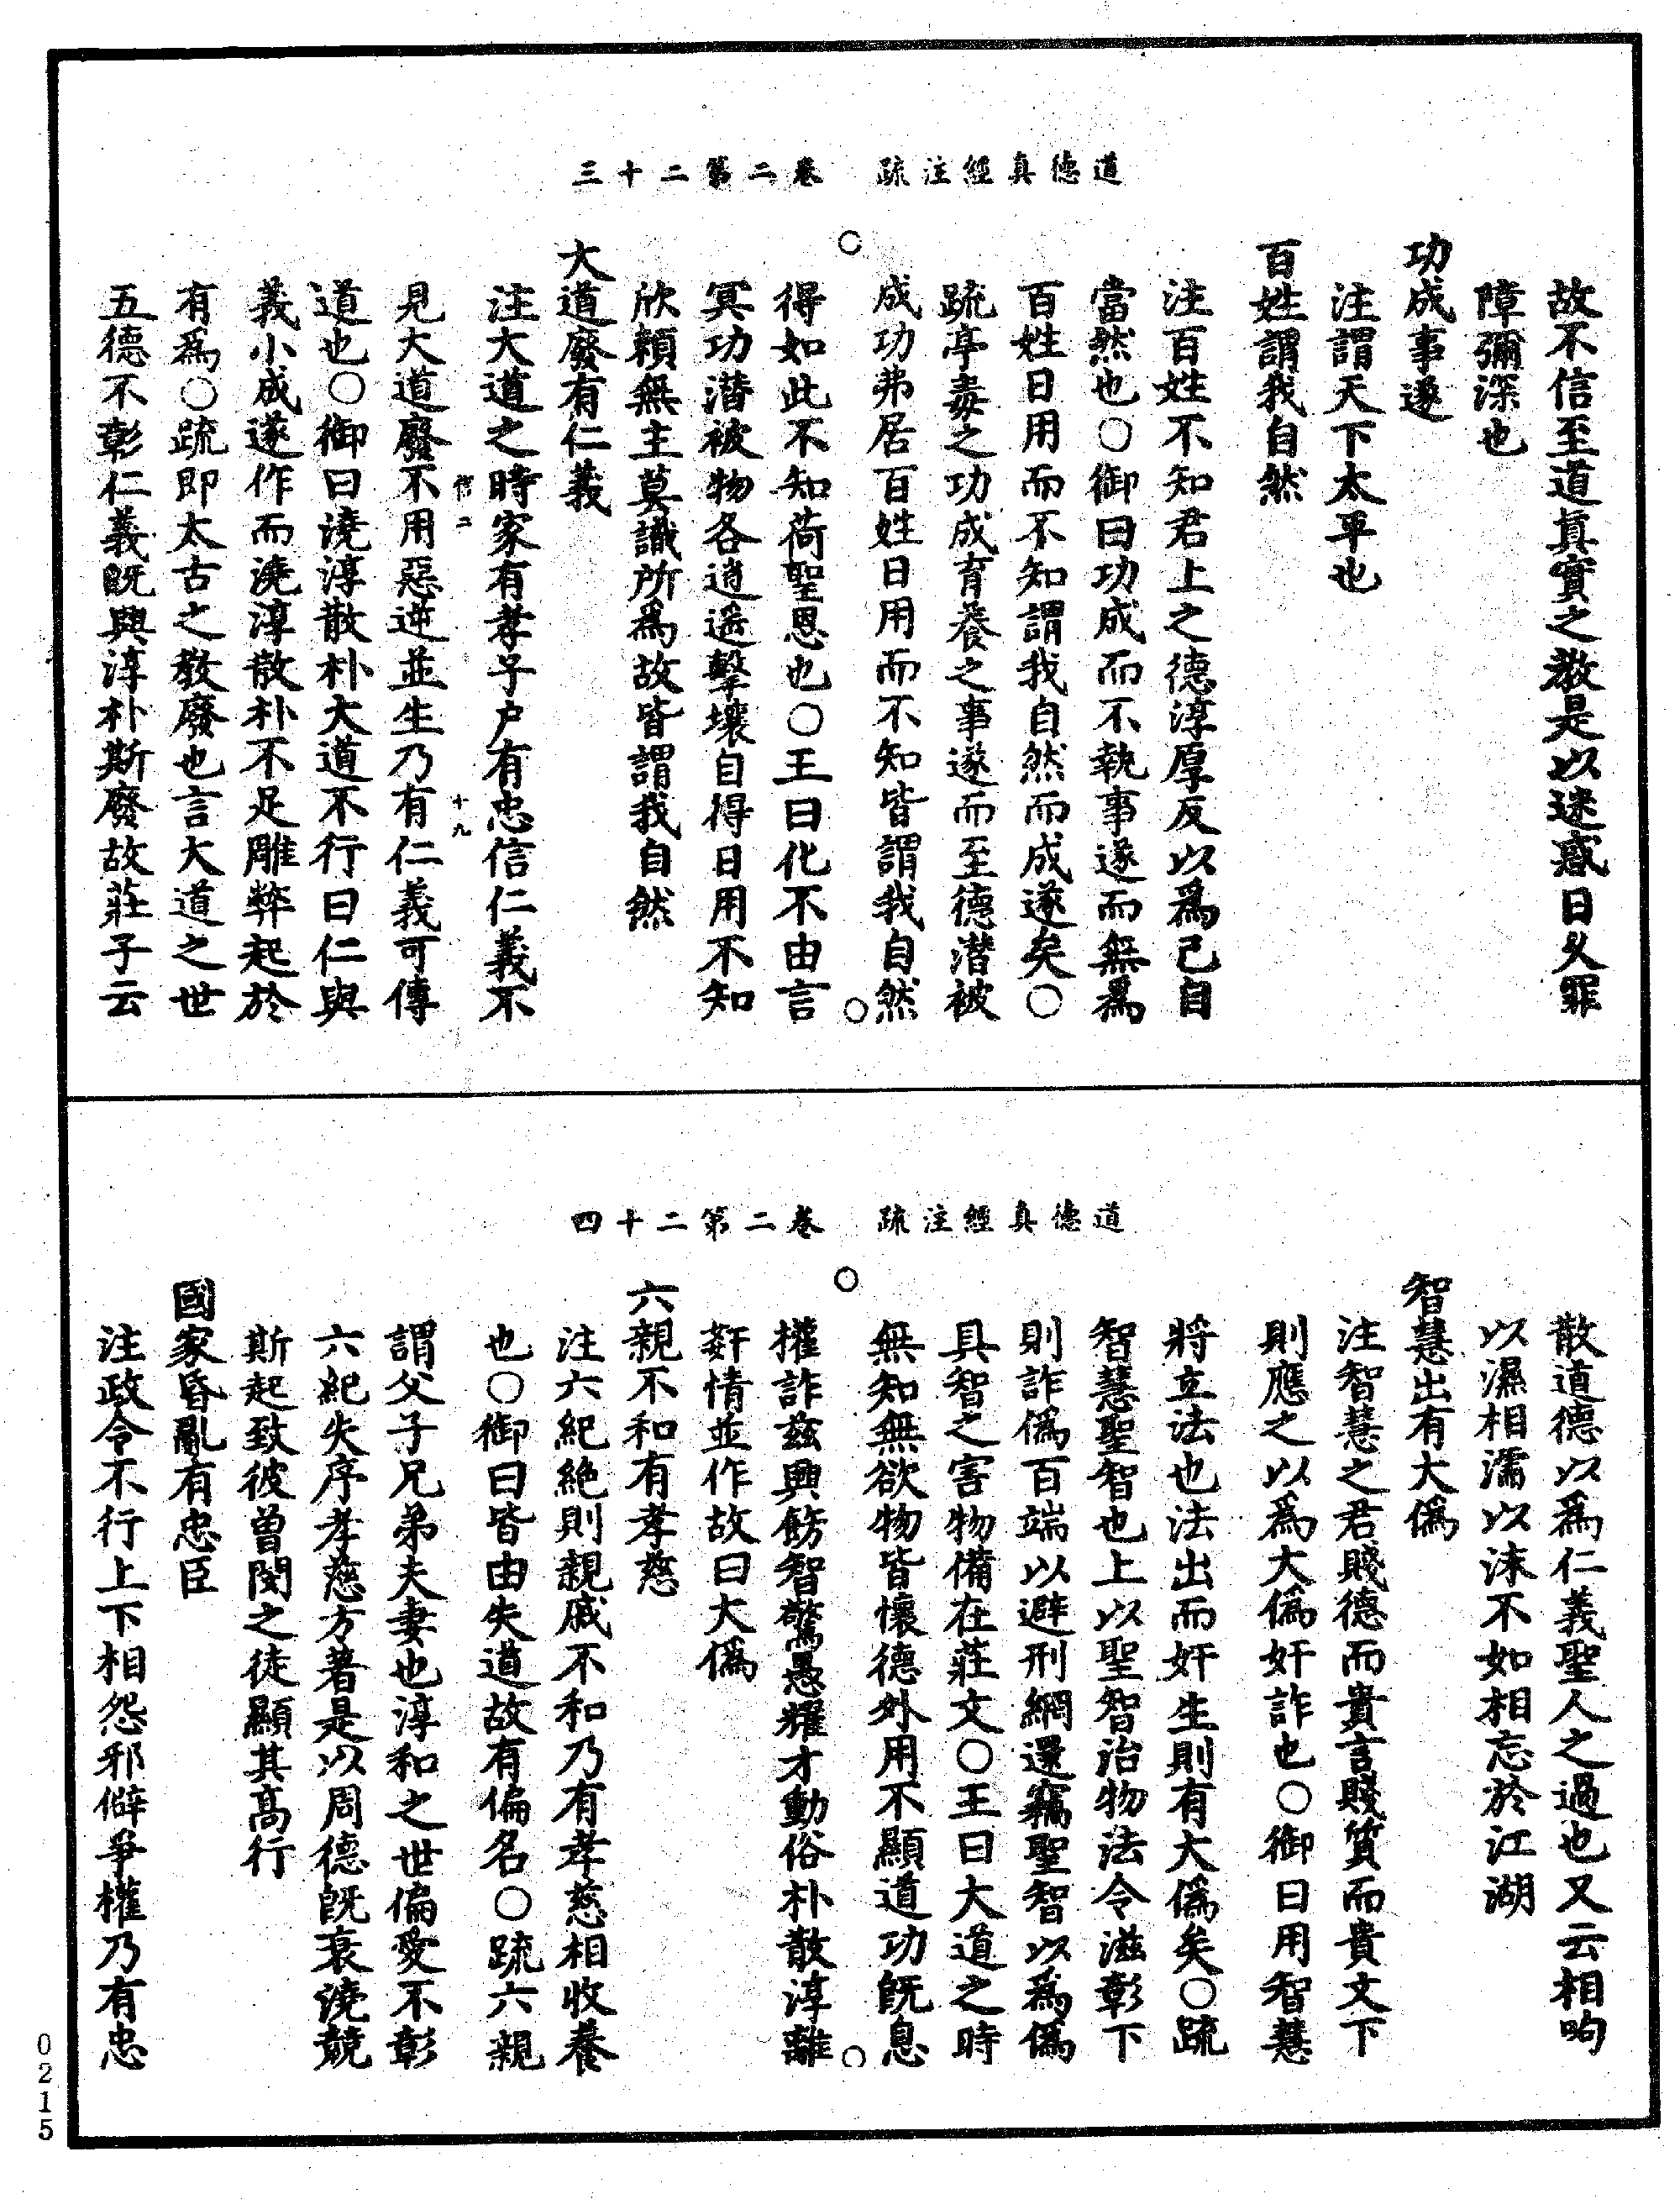 道德真經注疏　卷二第二十三
故不信至道真實之教是以迷惑日久罪
障彌深也
功成事遂
注謂天下太平也
百姓謂我自然
注百姓不知君上之德淳厚反以爲己自
當然也○御曰功成而不執事遂而無爲
百姓日用而不知謂我自然而成遂矣○
疏亭毒之功成育養之事遂而至德潜被
成功弗居百姓日用而不知皆謂我自然
得如此不知荷聖恩也○王曰化不由言
冥功潜被物各逍遥擊壤自得日用不知
欣賴無主莫識所爲故皆謂我自然
大道廢有仁義
注大道之時家有孝子户有忠信仁義不
十九
見大道廢不用惡逆並生乃有仁義可傳
道也○御曰澆淳散朴大道不行曰仁與
義小成遂作而澆淳散朴不足雕弊起於
有爲○疏即太古之教廢也言大道之世
五德不彰仁義既興淳朴斯廢故莊子云
道德真經注疏　卷二第二十四
散道德以爲仁義聖人之過也又云相呴
以濕相濡以沫不如相忘於江湖
智慧出有大僞
注智慧之君賤德而貴言賤質而貴文下
則應之以爲大僞奸詐也○御曰用智慧
將立法也法出而奸生則有大僞矣○疏
智慧聖智也上以聖智治物法令滋彰下
則詐僞百端以避刑網還竊聖智以爲僞
具智之害物備在莊文○王曰大道之時
無知無欲物皆懷德外用不顯道功既息
權詐兹興飾智驚愚耀才動俗朴散淳離
姧情並作故曰大僞
六親不和有孝慈
注六紀絶則親戚不和乃有孝慈相收養
也○御曰皆由失道故有偏名○疏六親
謂父子兄弟夫妻也淳和之世偏愛不彰
六紀失序孝慈方著是以周德既衰澆競
斯起致彼曾閔之徒顯其高行
國家昏亂有忠臣
注政令不行上下相怨邪僻爭權乃有忠
0215